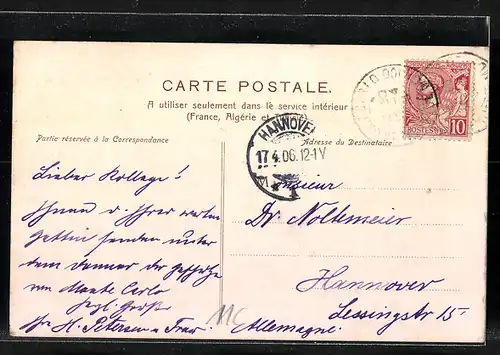 CARTE POSTALE.
A utiliser seulement dans le service intérieur
(France, Algérie et
Partie réservée à la Correspondance
Adresse du Destinataire
HANNOVER
17 4.06.12-1V
POSTES
10
Lieber Kollege!
Ihnen u. Ihrer werten
Gattin senden unter
dem Donner der Geschütze
von Monte Carlo
herzl. Grüße
Ihr H. Petersen u Frau
Monsieur
Dr Noltemeier
Hannover
Lessingstr 15
Allemagne.
MC